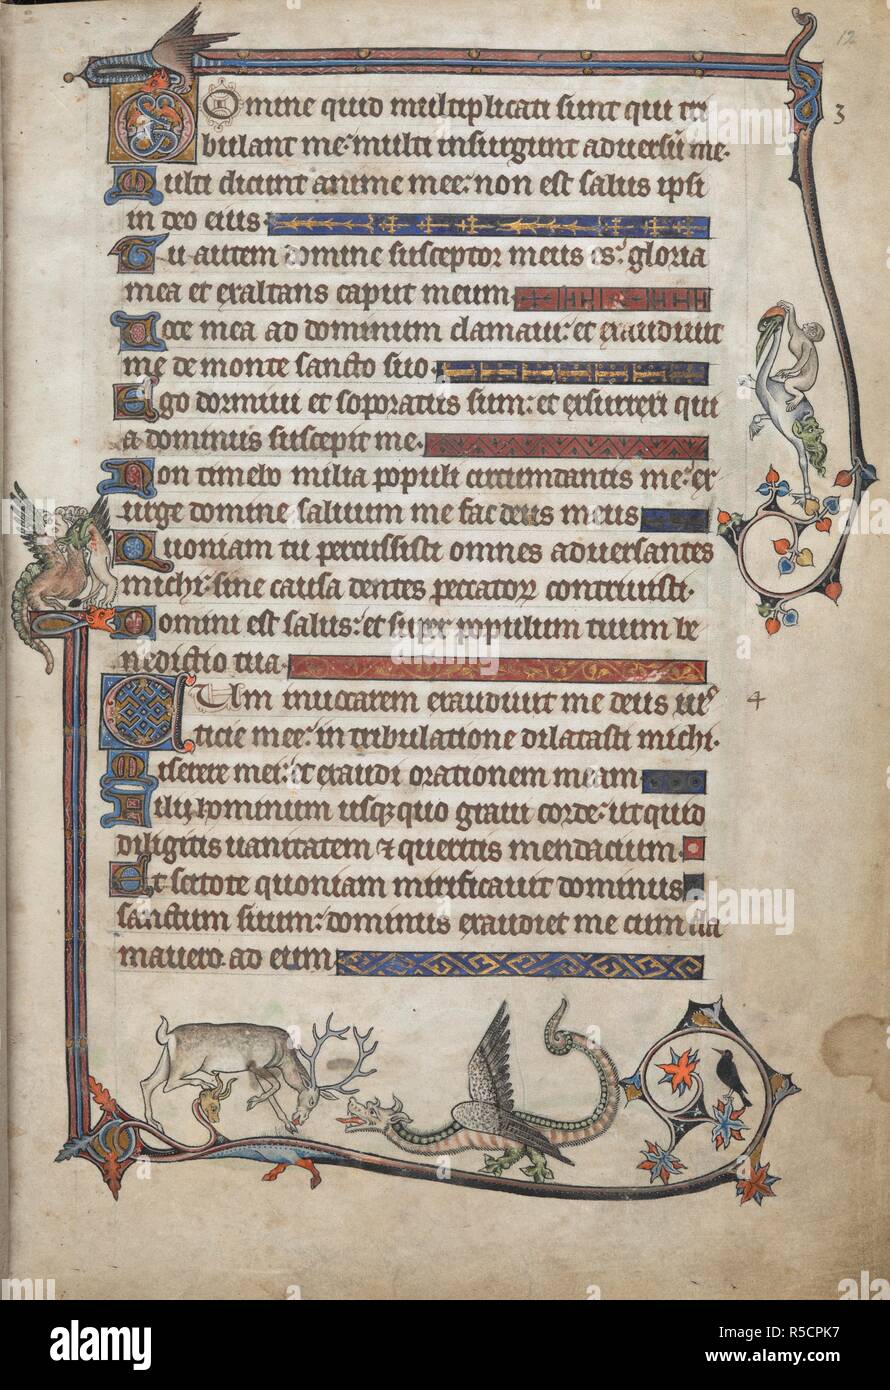 12
Omine quid multiplicati sunt qui tri
3
bulant me: multi insurgunt aduersū me.
Multi dicunt anime mee: non est salus ipsi
in deo eius.
Tu autem domine susceptor meus es: gloria
mea et exaltans caput meum.
Uoce mea ad dominum clamaui: et exaudiuit
me de monte sancto suo.
Ego dormiui et soporatus sum: et exsurrexi qui
a dominus suscepit me.
Non timebo milia populi circumdantis me: ex
urge domine saluum me fac deus meus
Quoniam tu percussisti omnes aduersantes
michi sine causa dentes peccatoꝝ contriuisti.
Domini est salus: et super populum tuum be
nedictio tua.
Cum inuocarem exaudiuit me deus ius
4
ticie mee: in tribulatione dilatasti michi.
Miserere mei: et exaudi orationem meam.
Filij hominum usq;quo graui corde: ut quid
diligitis uanitatem ⁊ queritis mendacium.
Et scitote quoniam mirificauit dominus
sanctum suum: dominus exaudiet me cum cla
mauero ad eum.
alamy
Image ID: R5CPK7
www.alamy.com